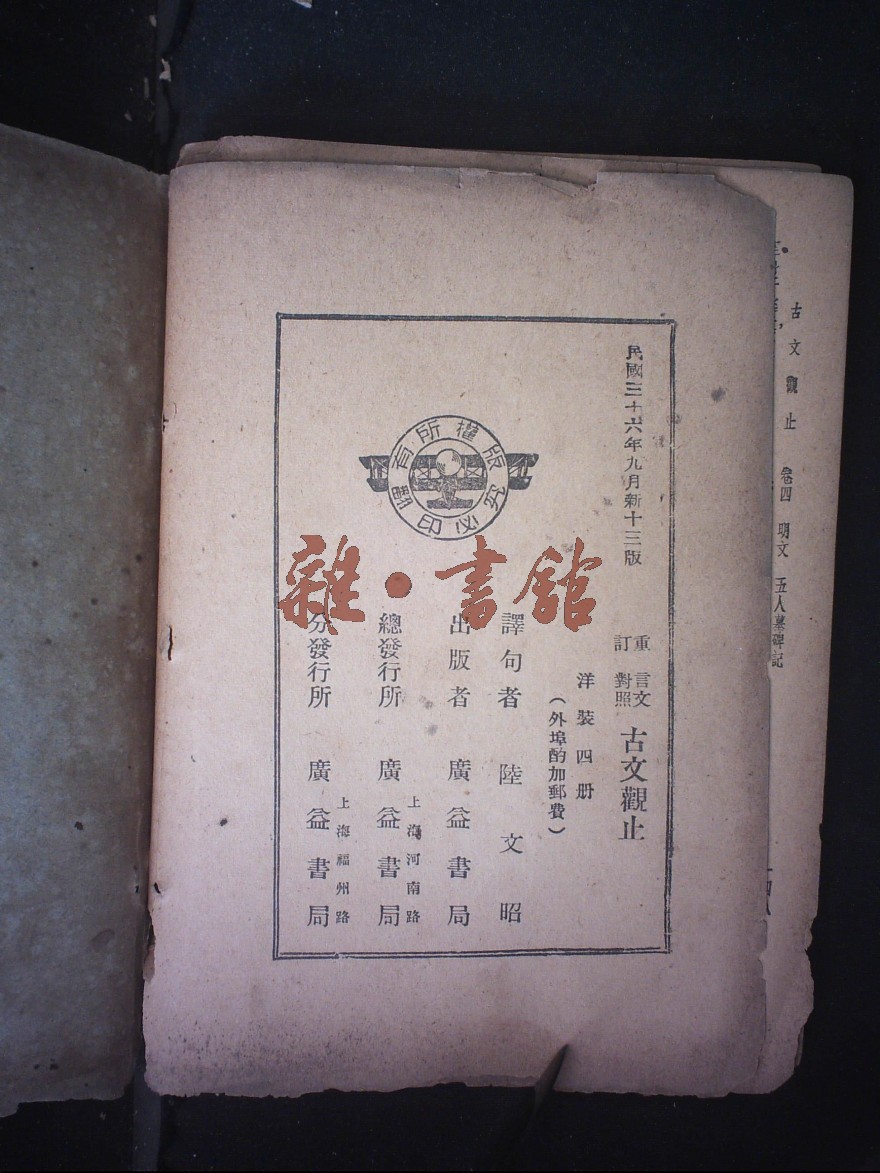 民國三十六年九月新十三版
重訂 言文對照 古文觀止
洋裝四册
（外埠酌加郵費）
譯句者 陸文昭
出版者 廣益書局
總發行所 上海河南路 廣益書局
分發行所 上海福州路 廣益書局
版權所有
翻印必究
雜·書館
古文觀止 卷四 明文 五人墓碑記